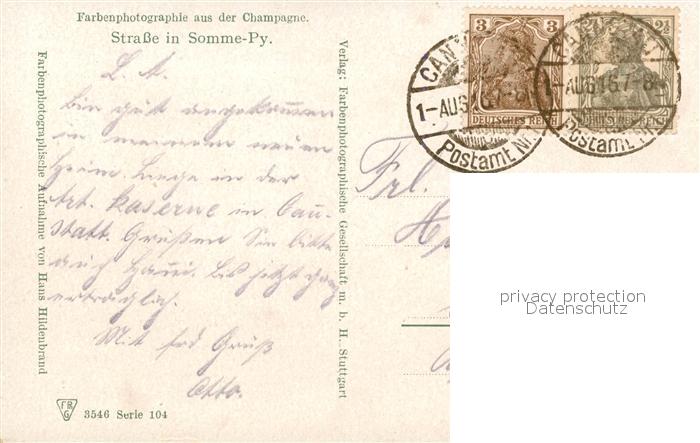 Farbenphotographie aus der Champagne.
Straße in Somme-Py.
Farbenphotographische Aufnahme von Hans Hildenbrand
L. A.
Bin gut angekommen
in meinem neuen
Heim. Liege in der
Art. Kaserne in Cann-
statt. Grüßen Sie bitte
auch Bis jetzt ganz
erträglich.
Mit frd Gruß
Otto.
3546 Serie 104
Verlag: Farbenphotographische Gesellschaft m. b. H., Stuttgart
3
DEUTSCHES REICH
2½
DEUTSCHES REICH
1-AUG 16 7-8
Postamt Nr.
1-AUG 16 7-8
Postamt
Frl.
privacy protection
Datenschutz